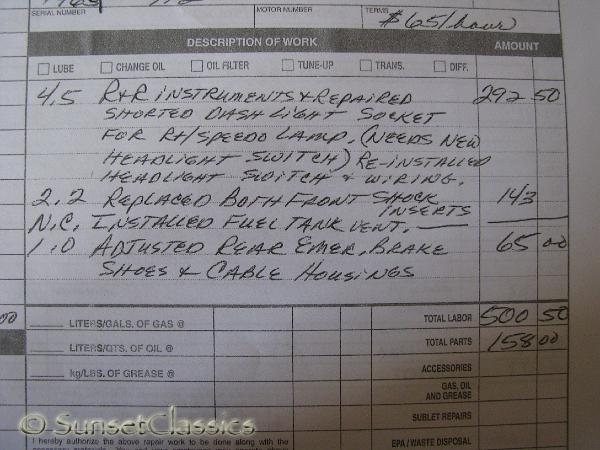 SERIAL NUMBER MOTOR NUMBER TERMS $65/hour
DESCRIPTION OF WORK AMOUNT
LUBE CHANGE OIL OIL FILTER TUNE-UP TRANS. DIFF.
4.5 R&R INSTRUMENTS & REPAIRED 292 50
SHORTED DASH LIGHT SOCKET
FOR RH/SPEEDO LAMP. (NEEDS NEW
HEADLIGHT SWITCH) RE-INSTALLED
HEADLIGHT SWITCH & WIRING.
2.2 REPLACED BOTH FRONT SHOCK INSERTS 143
N.C. INSTALLED FUEL TANK VENT. —
1.0 ADJUSTED REAR EMER. BRAKE 65 00
SHOES & CABLE HOUSINGS
LITERS/GALS. OF GAS @ TOTAL LABOR 500 50
LITERS/QTS. OF OIL @ TOTAL PARTS 158 00
kg/LBS. OF GREASE @ ACCESSORIES
GAS, OIL
AND GREASE
© SunsetClassics SUBLET REPAIRS
I hereby authorize the above repair work to be done along with the
EPA / WASTE DISPOSAL